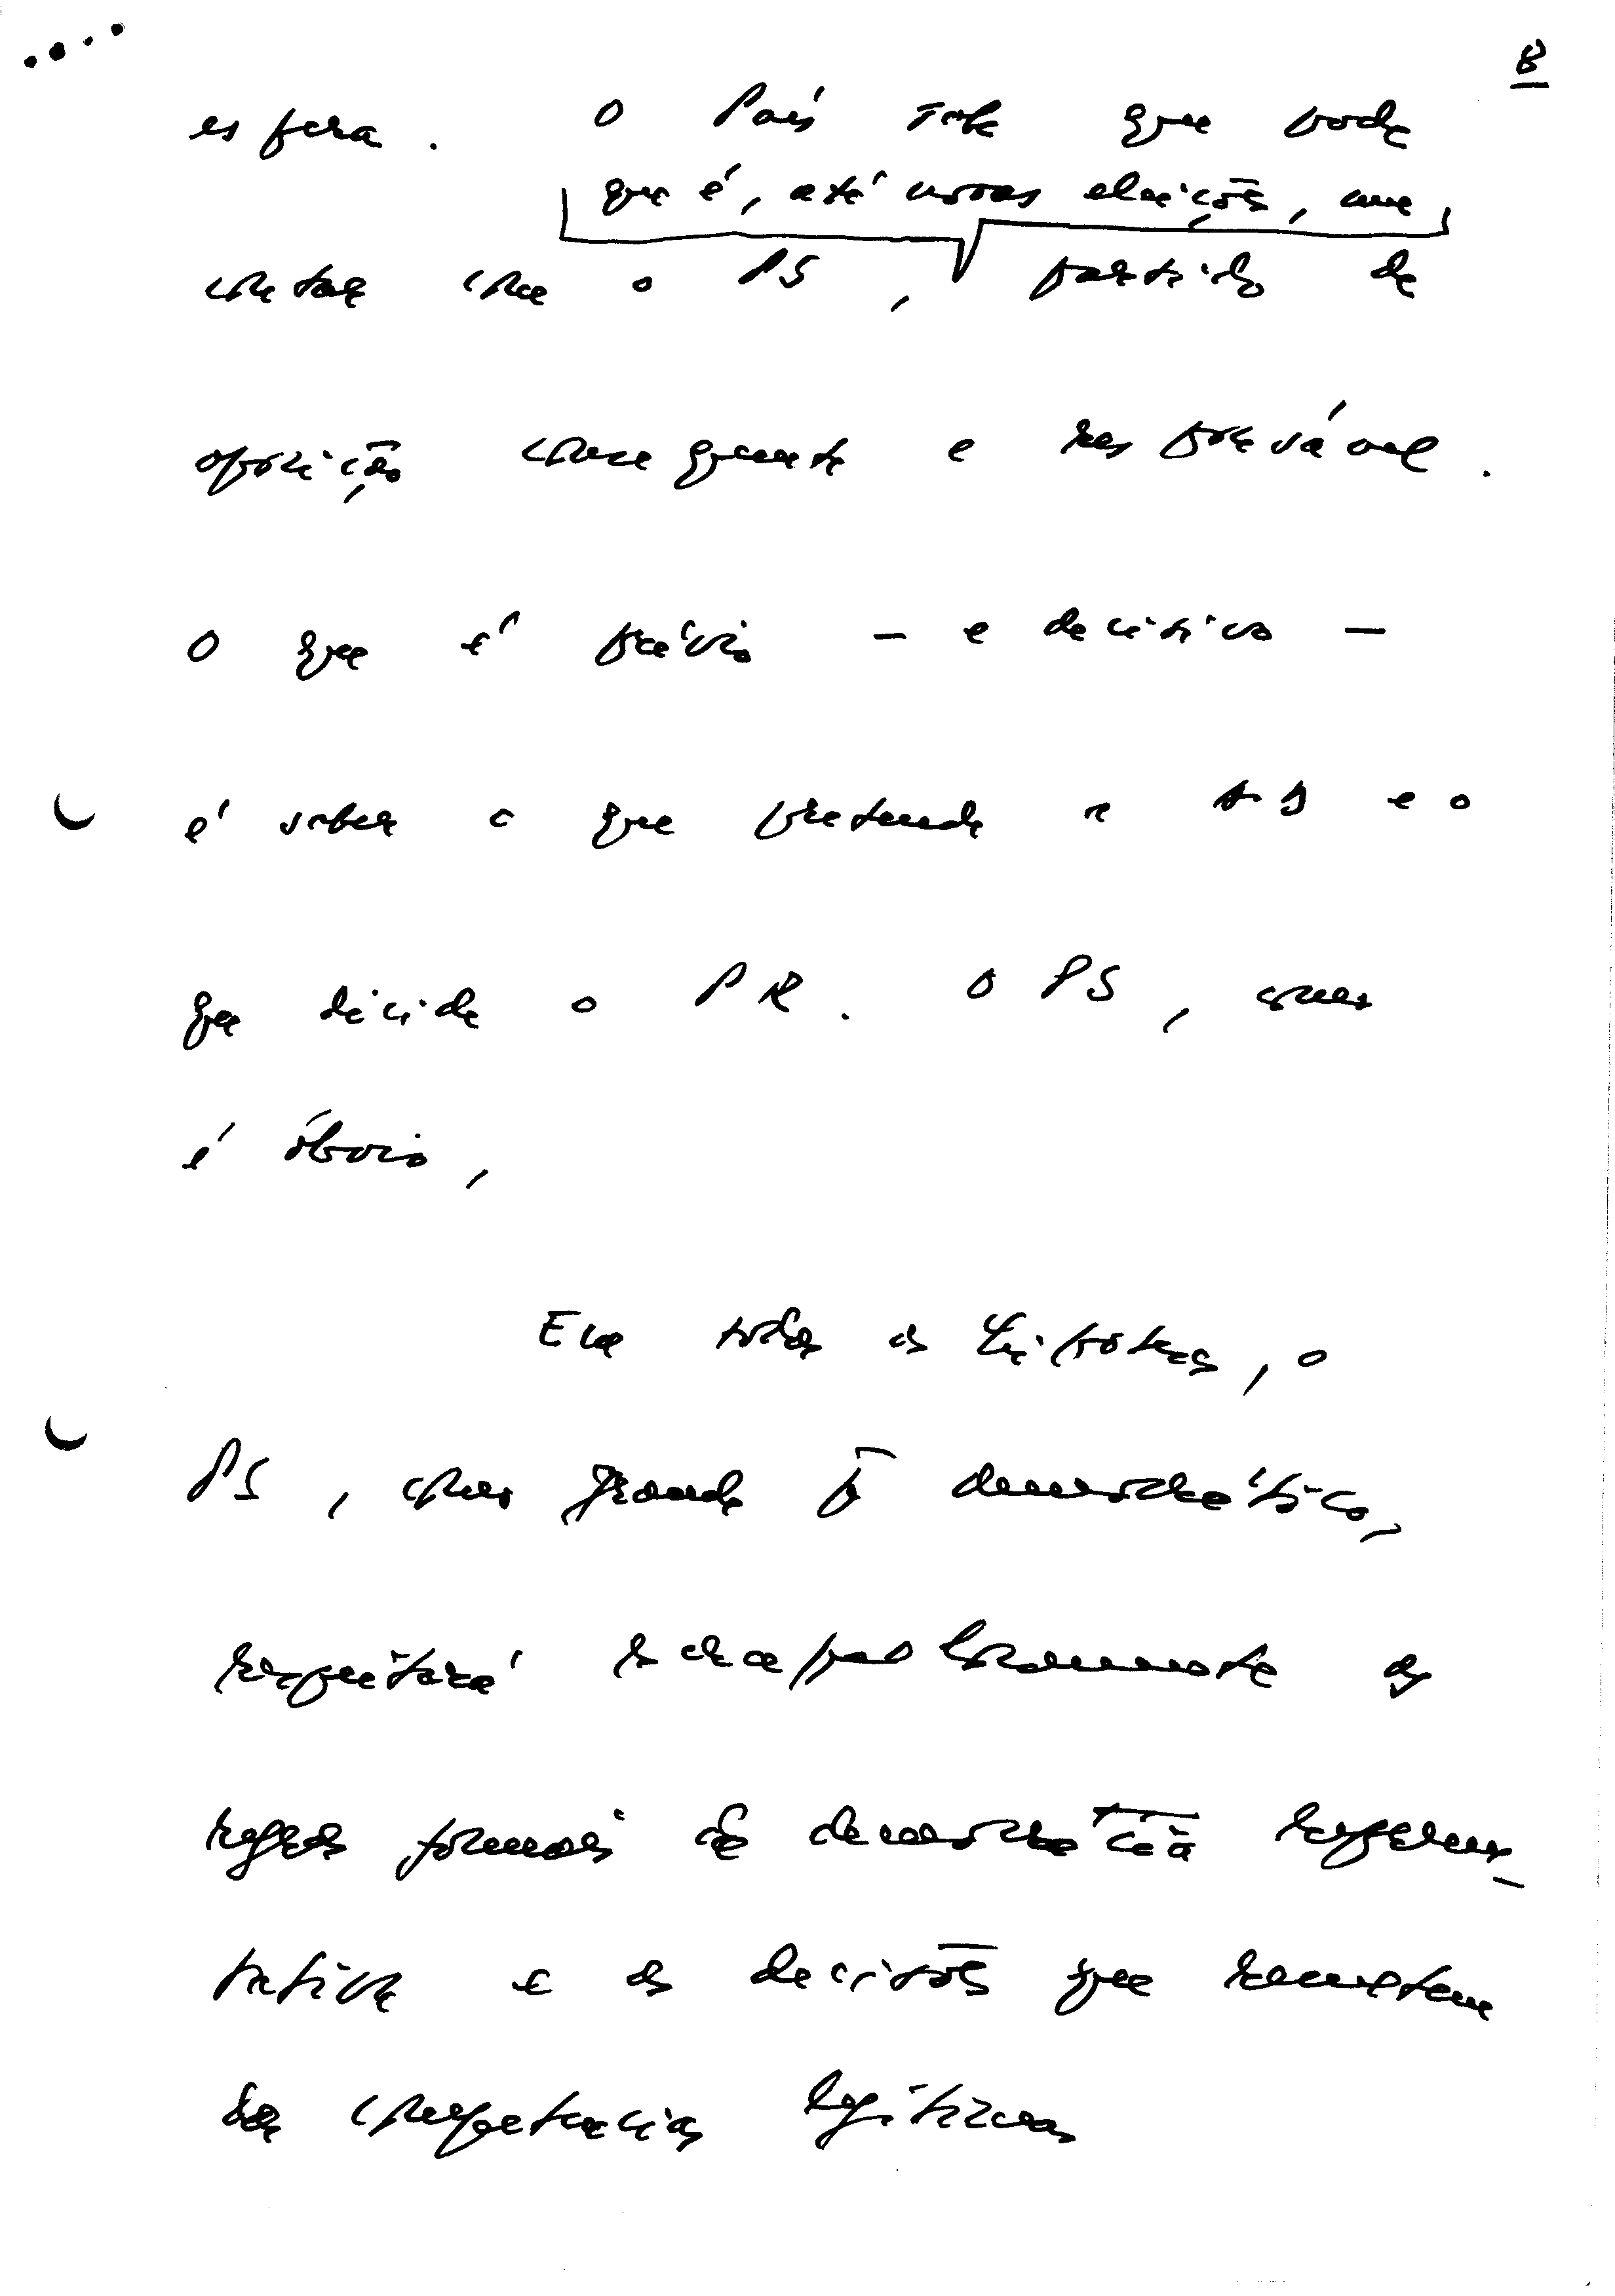 8
esfera. O País sabe que pode
que é, até novas eleições, um
contar com o PS, partido de
oposição consequente e responsável.
O que é prévio – e decisivo –
é saber o que pretende a AD e o
que decide o PR. O PS, como
é óbvio,
Em todas as hipóteses, o
PS, como grande democrático,
respeitará escrupulosamente as
regras formais da democracia represen-
tativa e as decisões que remetem
das competências legítimas